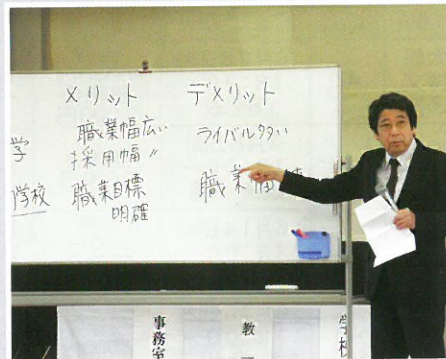 メリット デメリット
学 職業幅広い ライバル多い
採用幅〃
学校 職業目標 職業
明確
事務室
教
学校